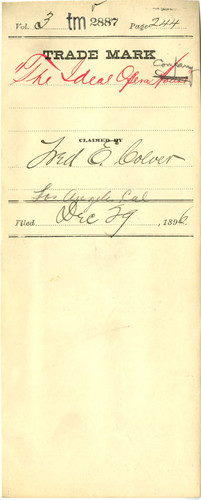 Vol. 3 tm 2887 Page 244
TRADE MARK
"The Ideal Opera Company
CLAIMED BY
Fred E. Colver
Los Angeles Cal
Filed Dec 29, 1896.